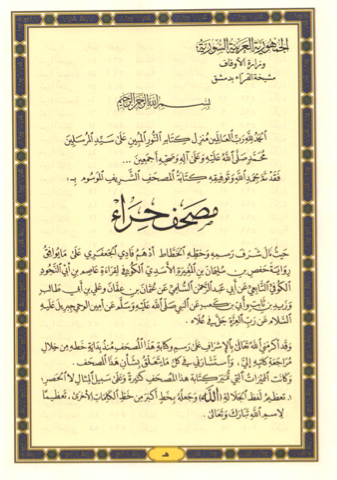 الجمهورية العربية السورية
وزارة الأوقاف
مشيخة القراء بدمشق
بسم الله الرحمن الرحيم
الحمد لله رب العالمين منزل كتابه النور المبين على سيد المرسلين
محمد صلى الله عليه وعلى آله وصحبه أجمعين ...
فقد تم بحمد الله وتوفيقه كتابة المصحف الشريف الموسوم بـ:
مصحف حراء
حيث نال شرف رسمه وخطه الخطاط أدهم فادي الجعفري على ما يوافق
رواية حفص بن سليمان بن المغيرة الأسدي الكوفي لقراءة عاصم بن أبي النجود
الكوفي التابعي عن أبي عبد الرحمن السلمي عن عثمان بن عفان وعلي بن أبي طالب
وزيد بن ثابت وأبي بن كعب عن النبي صلى الله عليه وسلم عن أمين الوحي جبريل عليه
السلام عن رب العزة جل في علاه .
وقد أكرمني الله تعالى بالإشراف على رسم وكتابة هذا المصحف منذ بداية خطه من خلال
مراجعة كاتبه إلي ، واستشارتي في كل ما يتعلق بشأن هذا المصحف .
وكانت الميزات التي تميز كتابة هذا المصحف كثيرة وعلى سبيل المثال لا الحصر:
١. تعظيم لفظ الجلالة (الله) وجعله بخط أكبر من خط الكلمات الأخرى، تعظيما
لاسم الله تبارك وتعالى .
هـ